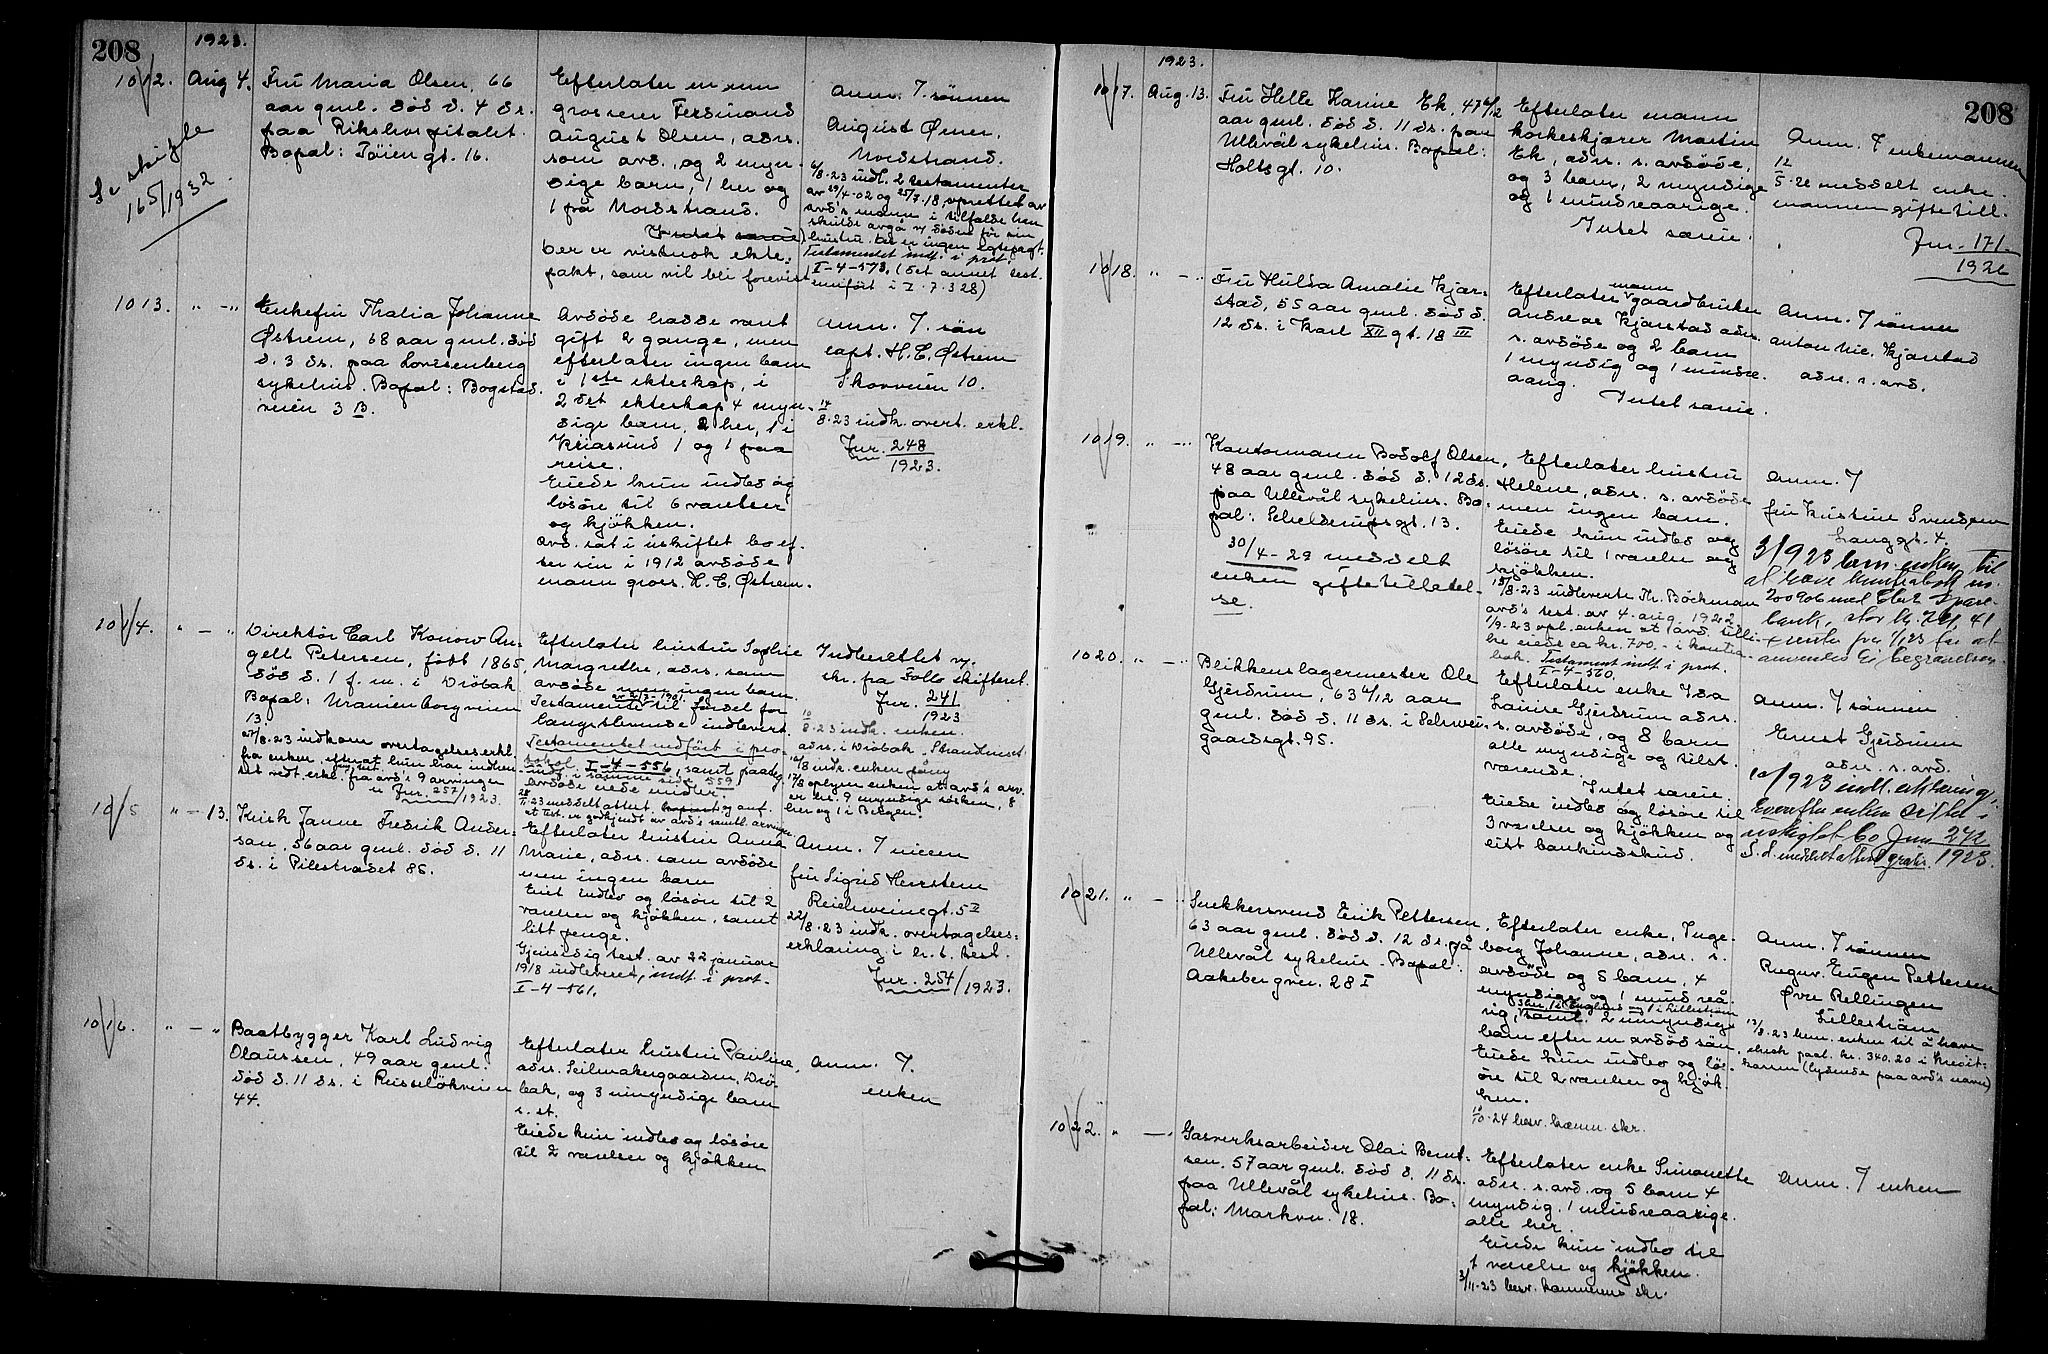 208
1923.
1012. Aug 4.
Fru Maria Olsen, 66
aar gml. död d. 4 ds.
paa Rikshospitalet.
Bopæl: Töien gt. 16.
Se skifte
165/1932.
Efterlater en mann
grosserer Ferdinand
August Olsen, adrs.
som avd., og 2 myn-
dige barn, 1 her og
1 på Nordstrand.
Intet særeie
Der er vistnok ekte-
pakt, som vil bli forevist
Anm. 7. sönnen
August Ømer.
Nordstrand.
6/8.23 indl. 2 testamenter
av 29/4-02 og 25/7.18, oprettet av
avd's mann i tilfælde han
skulde avgå v/ döden för sin
hustru. Der er ingen egtepagt.
Testamentet indf. i prot.
I-4-573. (Det annet test.
innfört i I.7.328)
1013. " - "
Enkefru Thalia Johanne
Østrem, 68 aar gml. död
d. 3 ds. paa Lovisenberg
sykehus. Bopæl: Bogstad-
veien 3 B.
Avdöde hadde vært
gift 2 gange, men
efterlater ingen barn
i 1ste ekteskap, i
2det ekteskap 4 myn-
dige barn, 2 her, 1 i
Kr.iasund 1 og 1 paa
reise.
Eiede kun indbo og
lösöre til 6 værelser
og kjökken.
Avd. sat i uskiftet bo ef-
ter sin i 1912 avdöde
mann gross. H. E. Østrem.
Anm. 7. sön
capt. H. E. Østrem
Skovveien 10.
14/8.23 indk. overt. erkl.
Jnr. 248/1923.
1014. " - "
Direktör Carl Konow An-
gell Petersen, födt 1865,
död d. 1 f. m. i Dröbak
Bopæl: Uranienborgveien
13.
27/8.23 indkom overtagelseserkl.
fra enken efterat hun har indhen-
tet vedt. erkl. fra avd's 9 arvinger
Jnr. 257/1923.
Efterlater hustru Sophie
Margrethe, adrs. som
avdöde men ingen barn.
Testamente til fordel for
längstlevende indlevert.
Testamentet indfört i pro-
tokol I-4-556, samt paateg-
ning i samme side 559
Avdöde eiede midler.
at test. er godkjendt av avd's samtl. arvinger
Indberettet v/
skr. fra Follo skifteret.
Jnr. 241/1923
10/8.23 indk. enken.
adrs. i Dröbak, Strandgt.
17/8 oplyser enken at avd's arv.
er hs. 9 myndige sösken, 8
her og 1 i Bergen.
1015 " - 13.
Krisk Janne Fredrik Ander-
sen, 56 aar gml. död d. 11
ds. i Pilestrædet 85.
Efterlater hustru Anna
Marie, adrs. som avdöde
men ingen barn
Eiet indbo og lösöre til 2
værelser og kjökken, samt
litt penge.
Gjensidig test. av 22 januar
1918 indleveret, indf. i prot.
I-4-561.
Anm. 7 niecen
fru Sigrid Herrstem
Reichweinsgt. 5 II
22/8.23 indk. overtagelses-
erklæring i h. t. test.
Jnr. 254/1923.
1016. " - "
Baatbygger Karl Ludvig
Olaussen, 49 aar gml.
död d. 11 ds. i Ruseløkveien
44.
Efterlater hustru Pauline,
adrs. Seilmakergaarden, Drö-
bak, og 3 umyndige barn
s. st.
Eiede kun indbo og lösöre
til 2 værelser og kjökken
Anm. 7.
enken
208
1923.
1017. Aug. 13.
Fru Helle Karine Ek, 47 6/12
aar gml. död d. 11 ds. paa
Ullevål sykehus. Bopæl:
Holtsgt. 10.
Efterlater mann
korkeskjærer Martin
Ek, adrs. s. avdöde,
og 3 barn, 2 myndige
og 1 mindreaarige.
Intet særeie.
Anm. 7 enkemannen
12/5.26 meddelt enke-
mannen giftetill.
Jnr. 171/1926
1018. " - "
Fru Hulda Amalie Kjær-
stad, 55 aar gml. död d.
12 ds. i Karl XII gt. 18 III
Efterlater mann gaardbruker
Andreas Kjærstad adrs.
s. avdöde og 2 barn
1 myndig og 1 mindre-
aarig. Intet særeie.
Anm. 7 sönnen
Anton Nic. Kjærstad
adrs. s. avd.
1019. " - "
Kontormann Bodolf Olsen,
48 aar gml. död d. 12 ds.
paa Ullevål sykehus. Bo-
pæl: Schelderupsgt. 13.
30/4-29 meddelt
enken giftetilladel-
se.
Efterlater hustru
Helene, adrs. s. avdöde
men ingen barn.
Eiede kun indbo og
lösöre til 1 værelse og
kjökken.
15/8.23 indleverte Th. Böckman
avd's test. av 4. aug. 1922
1/9.23 opl. enken at avd. tilli-
ke eiede ca kr. 700.- i kontra-
bok. Testament indf. i prot.
I-4-560.
Anm. 7
fru Kristine Svendsen
Langgt. 4.
3/9 23 bem. enken til
at hæve
bank, stor kr. 741,41
+ renter fra 1/1 23 for at
anvendes til begravelsen.
1020. " - "
Blikkenslagermester Ole
Gjerdrum, 63 6/12 aar
gml. död d. 11 ds. i Schwen-
gaardsgt. 95.
Efterlater enke Ida
Laura Gjerdrum adrs.
s. avdöde, og 8 barn
alle myndige og tilst.
værende.
Intet særeie.
Eiede indbo og lösöre til
3 værelser og kjökken og
litt bankindskud.
Anm. 7 sönnen
Ernst Gjerdrum
adrs. s. avd.
10/9 23 indl. erklæring,
hvorefter enken sitter i
uskiftet bo Jnr. 242/1923.
S. d. meddelt attest gratis.
1021. " - "
Snekkersvend Erik Pettersen,
63 aar gml. död d. 12 ds. på
Ullevål sykehus. Bopæl:
Aakebergvei. 28 I
Efterlater enke, Inge-
borg Johanne, adrs. s.
avdöde og 5 barn, 4
myndige og 1 mindreå-
rig, samt 2 umyndige
barn efter en avdöd sön,
Eiede kun indbo og lös-
öre til 2 værelser og kjök-
ken.
10/10.24 besv. kæmn. skr.
Anm. 7 sönnen
Ruguv. Eugen Pettersen
Øvre Rellingen
Lilleström
13/8.23 bem. enken til å hæve
chek paal. kr. 340.20 i Kredit-
kassen (lydende paa avd's navn)
1022. " - "
Gasverksarbeider Olai Bernt-
sen, 57 aar gml. död d. 11 ds.
paa Ullevål sykehus. Bo-
pæl: Markvn. 18.
Efterlater enke Simonette
adrs. s. avd. og 5 barn 4
myndig. 1 mindreaarige.
alle her.
Eiede kun indbo til
1 værelse og kjökken.
3/11.23 besv. kæmnerens skr.
Anm. 7 enken